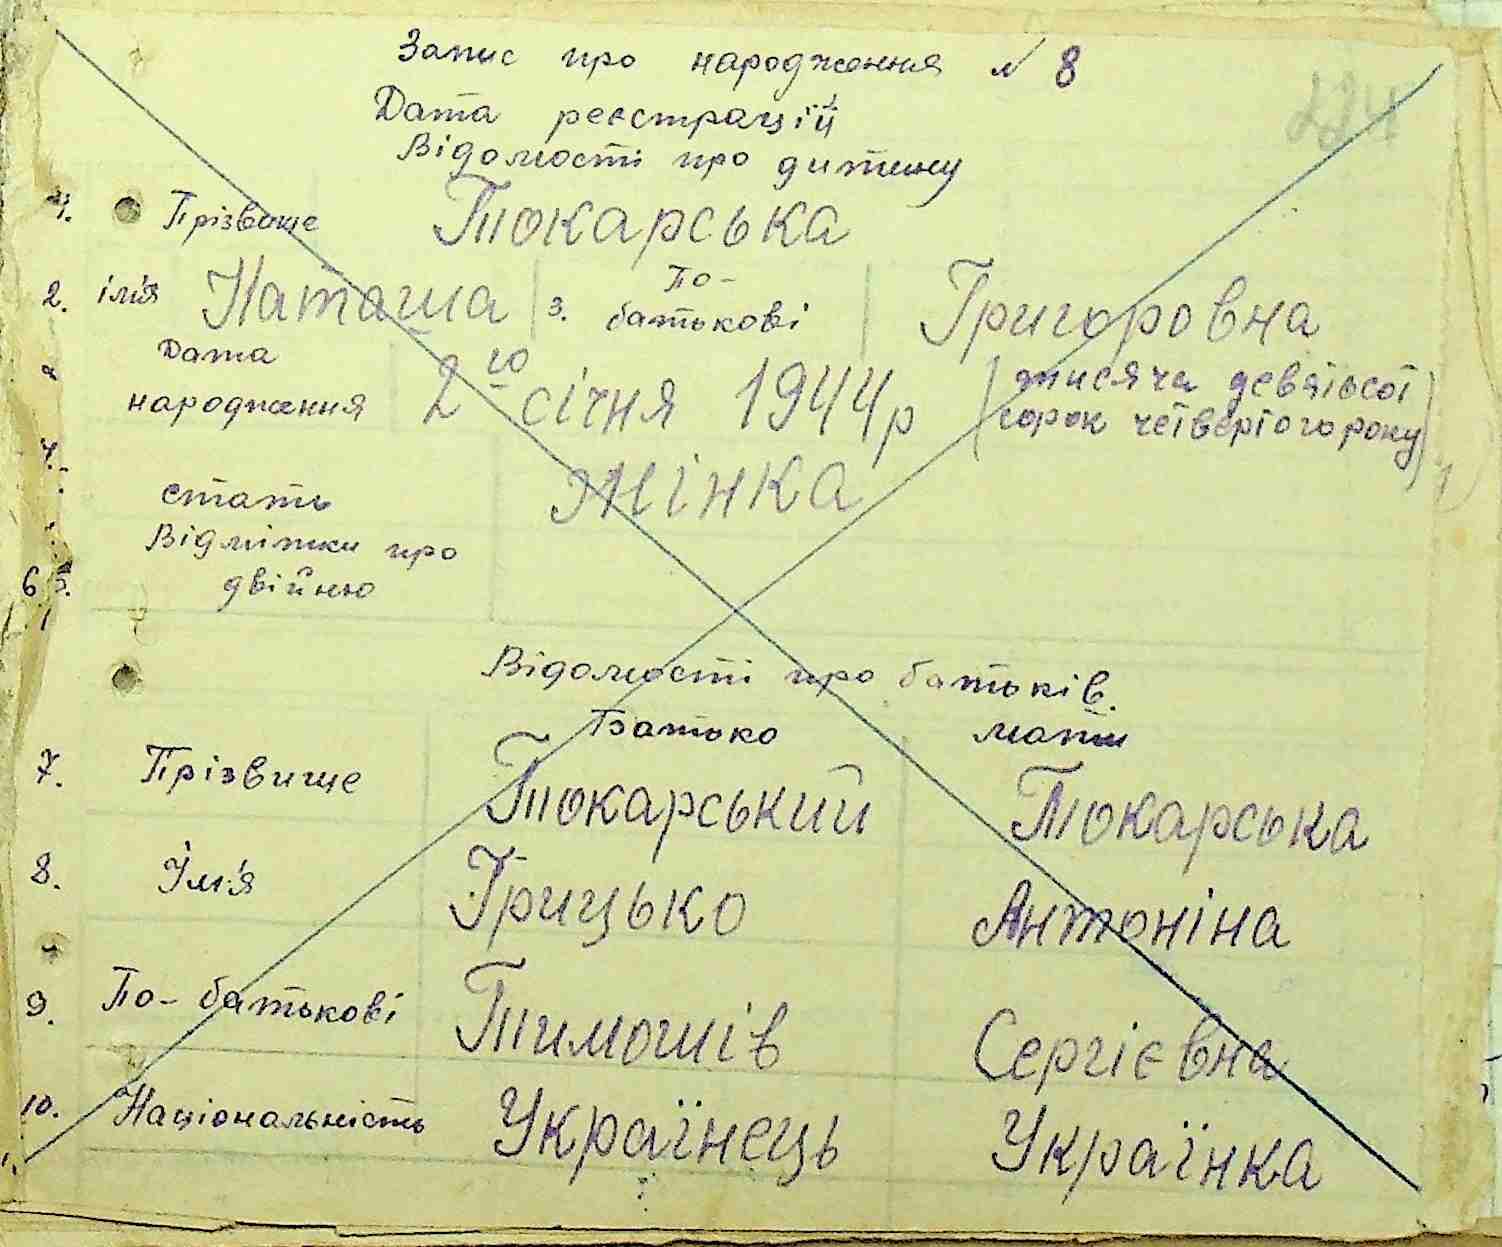 Запис про народження № 8
224
Дата реєстрації
Відомості про дитину
1. Прізвище Токарська
2. ім'я Наташа 3. По-батькові Григоровна
Дата народження 2го січня 1944р (тисяча девятьсот сорок четвертого року)
4.
стать жінка
Відмітки про
6 5. двійню
Відомості про батьків.
Батько мати
7. Прізвище Токарський Токарська
8. Ім'я Грицько Антоніна
9. По-батькові Тимошів Сергієвна
10. Національність Українець Українка